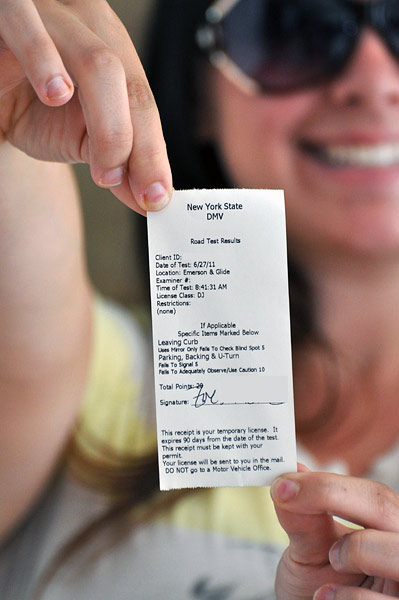 New York State
DMV
Road Test Results
Client ID:
Date of Test: 6/27/11
Location: Emerson & Glide
Examiner #:
Time of Test: 8:41:31 AM
License Class: DJ
Restrictions:
(none)
If Applicable
Specific Items Marked Below
Leaving Curb
Uses Mirror Only Fails To Check Blind Spot 5
Parking, Backing & U-Turn
Fails To Signal 5
Fails To Adequately Observe/Use Caution 10
Total Points: 20
Signature:
This receipt is your temporary license. It
expires 90 days from the date of the test.
This receipt must be kept with your
permit.
Your license will be sent to you in the mail.
DO NOT go to a Motor Vehicle Office.